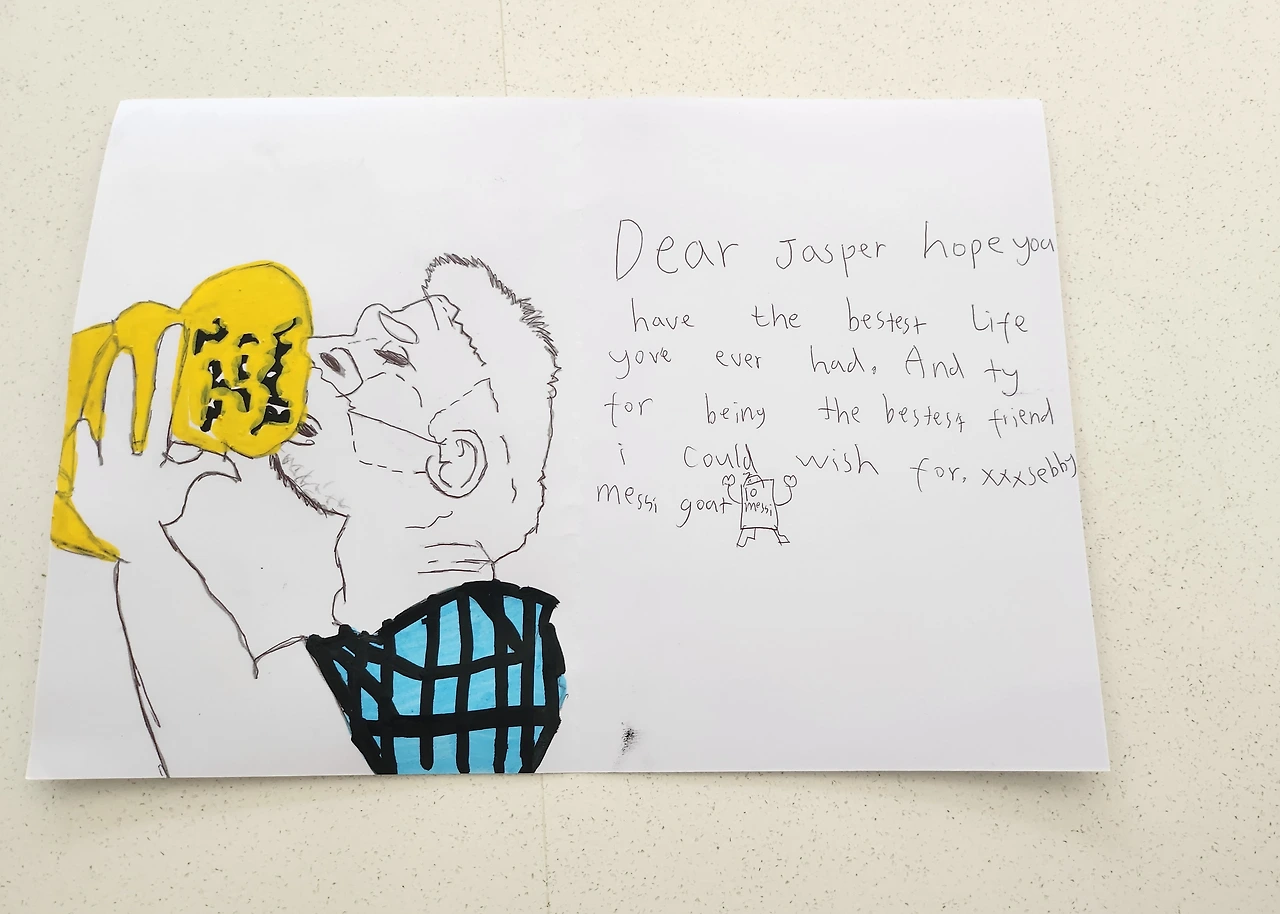 Dear Jasper hope you
have the bestest life
yove ever had. And ty
for being the bestest friend
i could wish for. xxxsebby
messi goat
10
messi